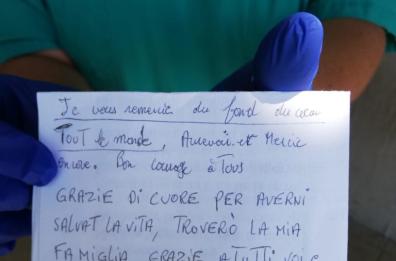 Je vous remercie du fond du cœur
Tout le monde, Aurevoir et Mercie
encore. Bon courage à Tous
GRAZIE DI CUORE PER AVERMI
SALVAT LA VITA, TROVERÒ LA MIA
FAMIGLIA GRAZIE A TUTTI VOLE